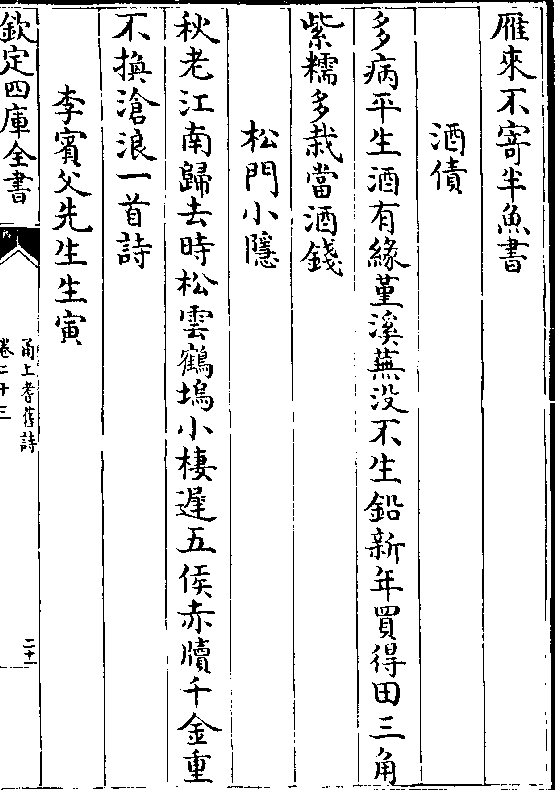 雁來不寄半魚書
酒債
多病平生酒有緣堇溪蕪没不生鉛新年買得田三角
紫糯多栽當酒錢
松門小隱
秋老江南歸去時松雲鶴塢小棲遲五侯赤牘千金重
不換滄浪一首詩
李賓父先生生寅
欽定四庫全書
甬上耆舊詩
卷二十三